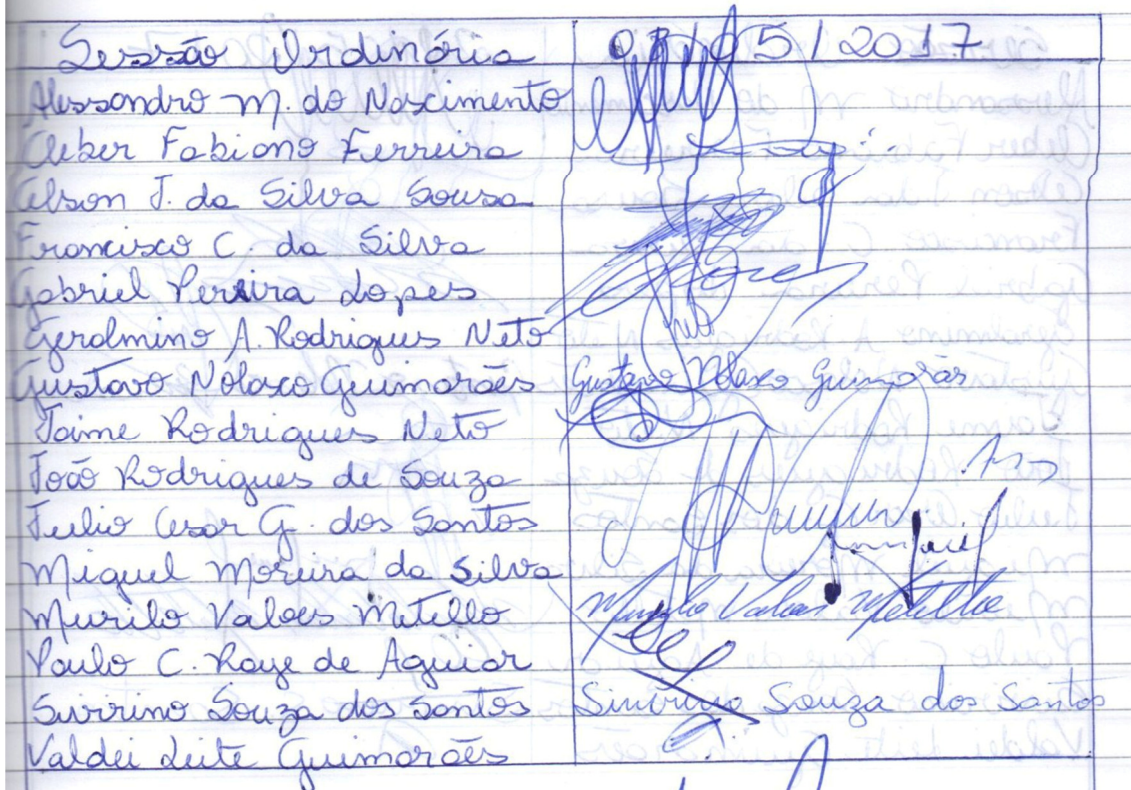 Sessão Ordinária /05/2017
Alessandro M. do Nascimento
Cleber Fabiano Ferreira
Celson J. da Silva Sousa
Francisco C. da Silva
Gabriel Pereira Lopes
Gerolmino A. Rodrigues Neto Neto
Gustavo Nolasco Guimarães Gustavo Nolasco Guimarães
Jaime Rodrigues Neto
João Rodrigues de Souza
Julio Cesar G. dos Santos
Miguel Moreira da Silva
Murilo Valoes Mitello Murilo Valoes Metello
Paulo C. Raye de Aguiar
Sivirino Souza dos Santos Sivirino Souza dos Santos
Valdei Leite Guimarães